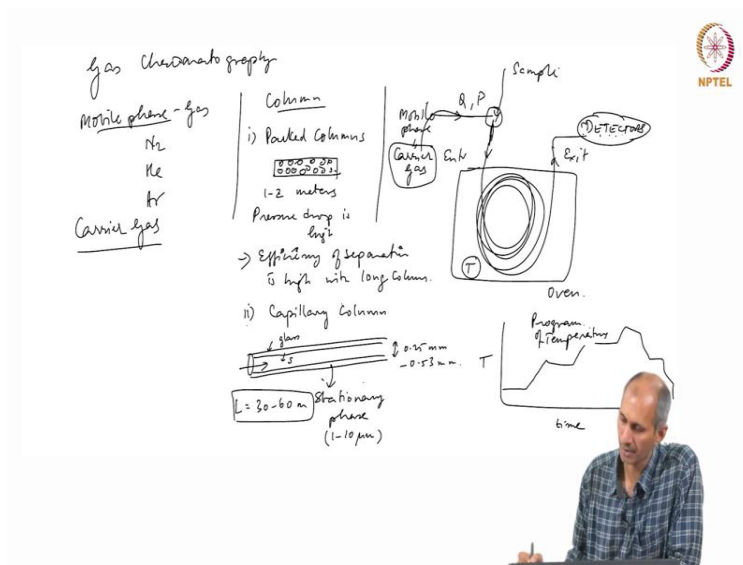 Gas Chromatography
Mobile phase - Gas
N2
He
Ar
Carrier Gas
Column
i) Packed Columns
1-2 meters
Pressure drop is
high
→ Efficiency of separation
is high with long column.
ii) Capillary Column
glass
S
0.25 mm
- 0.53 mm.
L = 30-60 m
Stationary
phase
(1-10 μm)
Sample
Q, P
Mobile
phase
Carrier
gas
Entr
DETECTORS
Exit
T
Oven.
Program
of Temperature
T
time
NPTEL